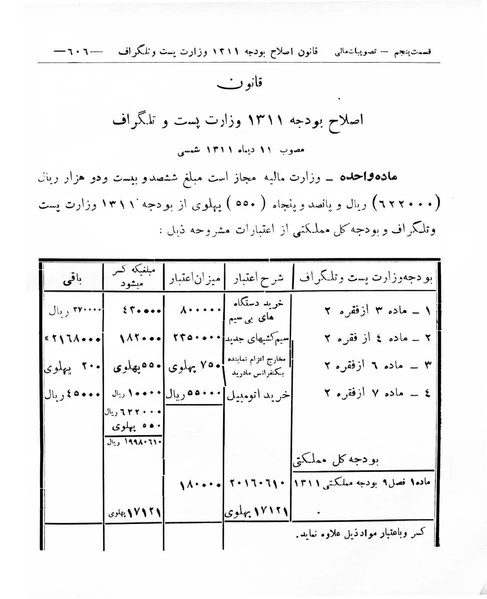 قسمت پنجم – تصویبات مالی    قانون اصلاح بودجه ۱۳۱۱ وزارت پست و تلگراف    —۶۰۶—
قانون
اصلاح بودجه ۱۳۱۱ وزارت پست و تلگراف
مصوب ۱۱ دیماه ۱۳۱۱ شمسی
ماده واحده – وزارت مالیه مجاز است مبلغ ششصد و بیست و دو هزار ریال
(۶۲۲۰۰۰) ریال و پانصد و پنجاه (۵۵۰) پهلوی از بودجه ۱۳۱۱ وزارت پست
و تلگراف و بودجه کل مملکتی از اعتبارات مشروحه ذیل :
بودجه وزارت پست و تلگراف    شرح اعتبار    میزان اعتبار    مبلغیکه کسر میشود    باقی
۱ – ماده ۳ از فقره ۲    خرید دستگاه های بی سیم    ۸۰۰۰۰۰    ۴۳۰۰۰۰    ۳۷۰۰۰۰ ریال
۲ – ماده ۴ از فقره ۲    سیم کشیهای جدید    ۲۳۵۰۰۰۰    ۱۸۲۰۰۰    ۲۱۶۸۰۰۰ «
۳ – ماده ۶ از فقره ۲    مخارج اعزام نماینده بکنفرانس مادرید    ۷۵۰ پهلوی    ۵۵۰ پهلوی    ۲۰۰ پهلوی
۴ – ماده ۷ از فقره ۲    خرید اتومبیل    ۵۵۰۰۰ ریال    ۱۰۰۰۰ ریال    ۴۵۰۰۰ ریال
۶۲۲۰۰۰ ریال
۵۵۰ پهلوی
۱۹۹۸۰۶۱۰ ریال
بودجه کل مملکتی
ماده ۱ فصل ۹ بودجه مملکتی ۱۳۱۱    ۲۰۱۶۰۶۱۰    ۱۸۰۰۰۰
۱۷۱۲۱ پهلوی    ۱۷۱۲۱ پهلوی
کسر و باعتبار مواد ذیل علاوه نماید.